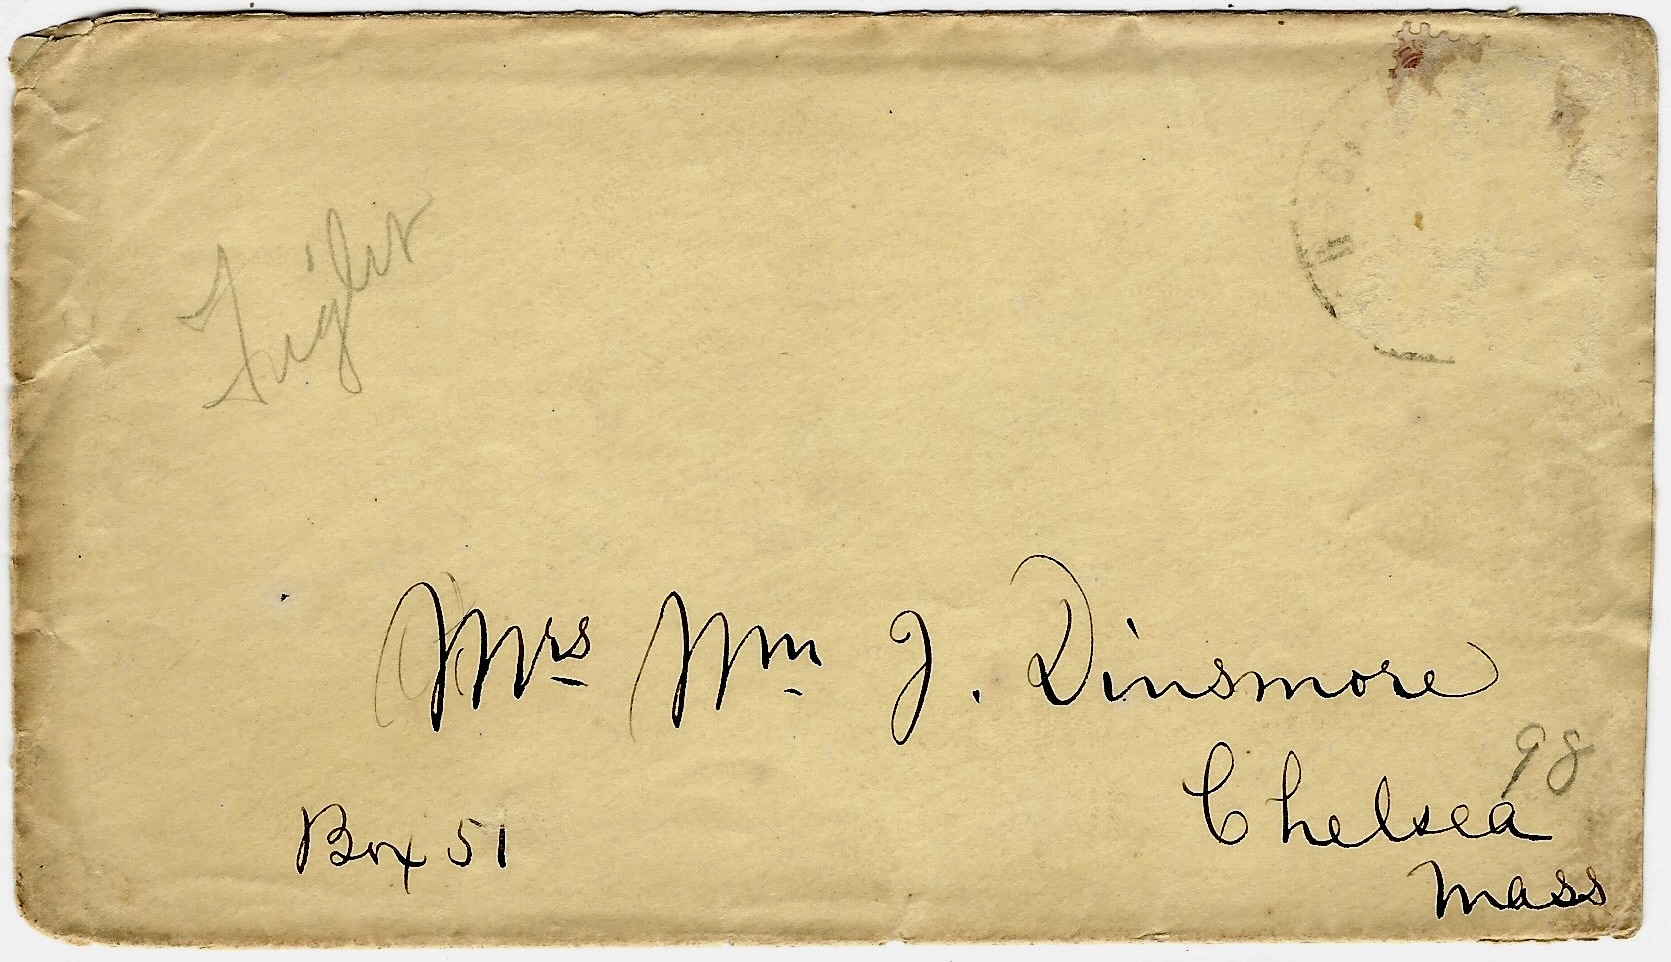 Mrs Wm J. Dinsmore
98
Chelsea
Box 51
Mass